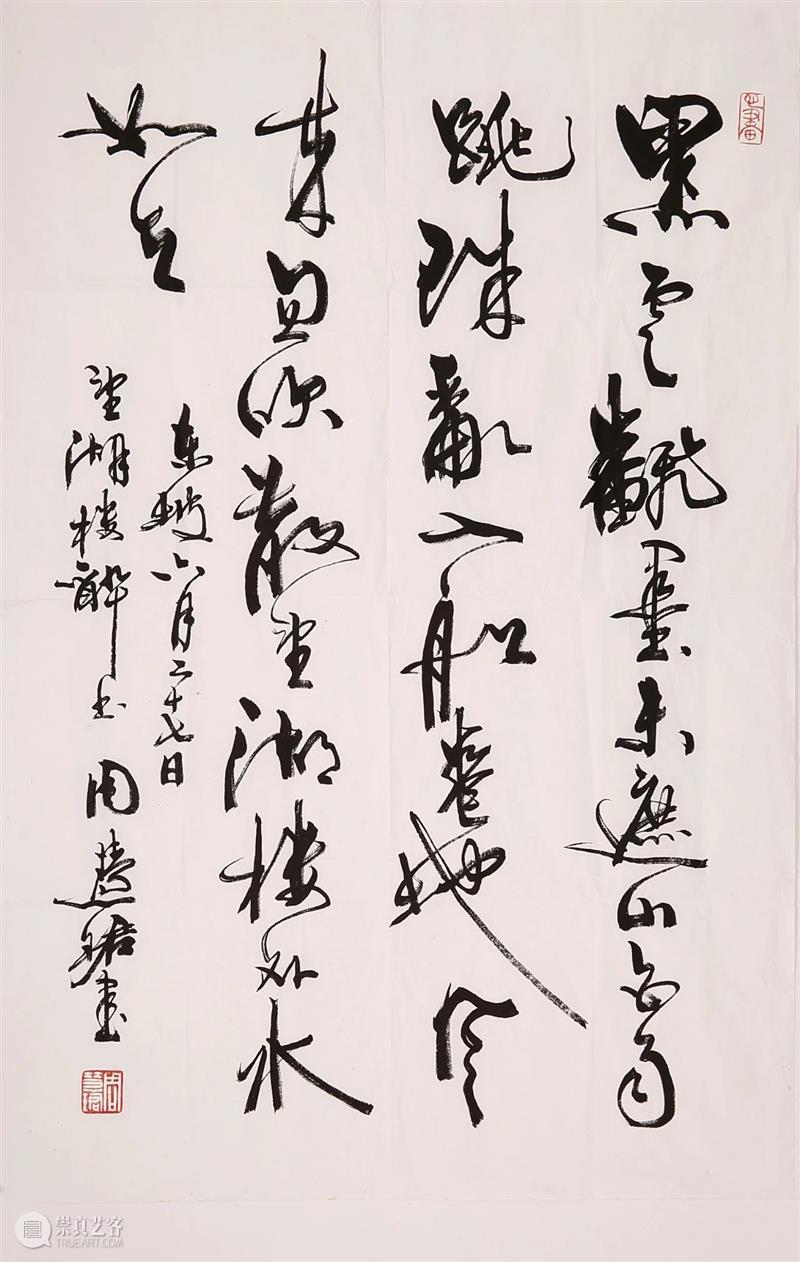 黑雲飜墨未遮山白雨
跳珠亂入船卷地风
来忽吹散望湖楼外水
如天
东坡六月二十七日
望湖楼醉书 周慧珺书
周慧珺
崇真艺客
WWW.TRUEART.COM